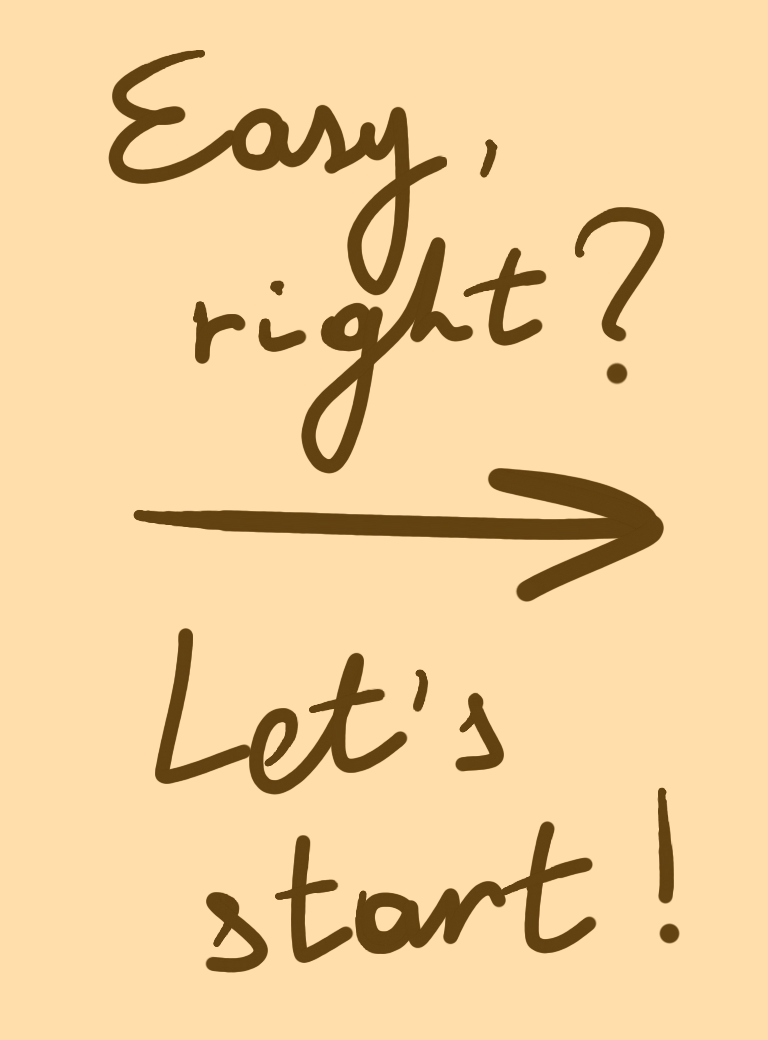 Easy,
right?
Let's
start!